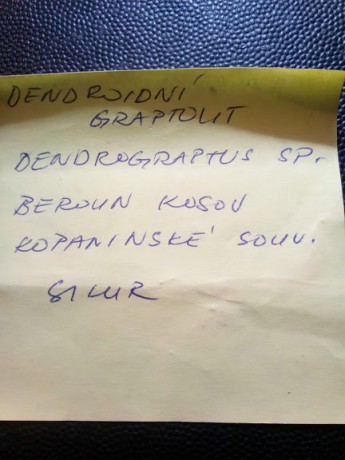 DENDROIDNÍ
GRAPTOLIT
DENDROGRAPTUS SP.
BEROUN KOSOV
KOPANINSKÉ SOUV.
SILUR